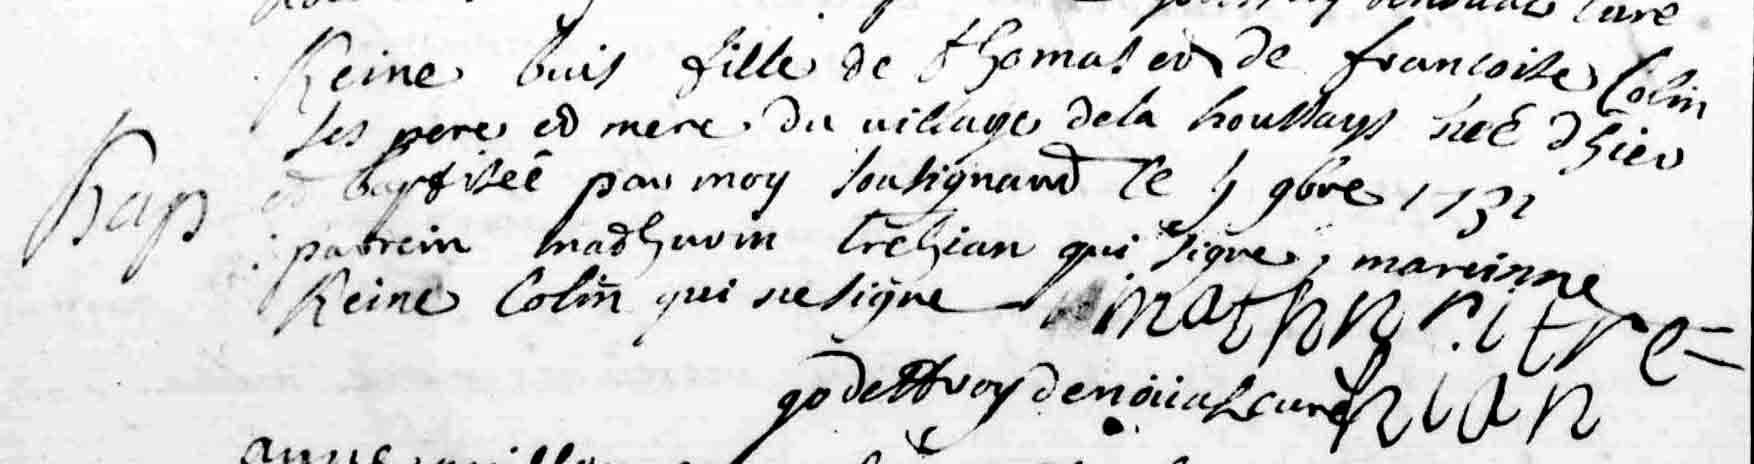 curé
Reine buis fille de thomas et de francoise Colin
ses pere et mere du village de la houssays neé d'hier
bap
et baptiseé par moy sousignant le 5 9bre 1731
parrein mathurin trehian qui signe, mareinne
Reine Colin qui ne signe mathuri tre=
godeffroy denoüal curé hian
anne